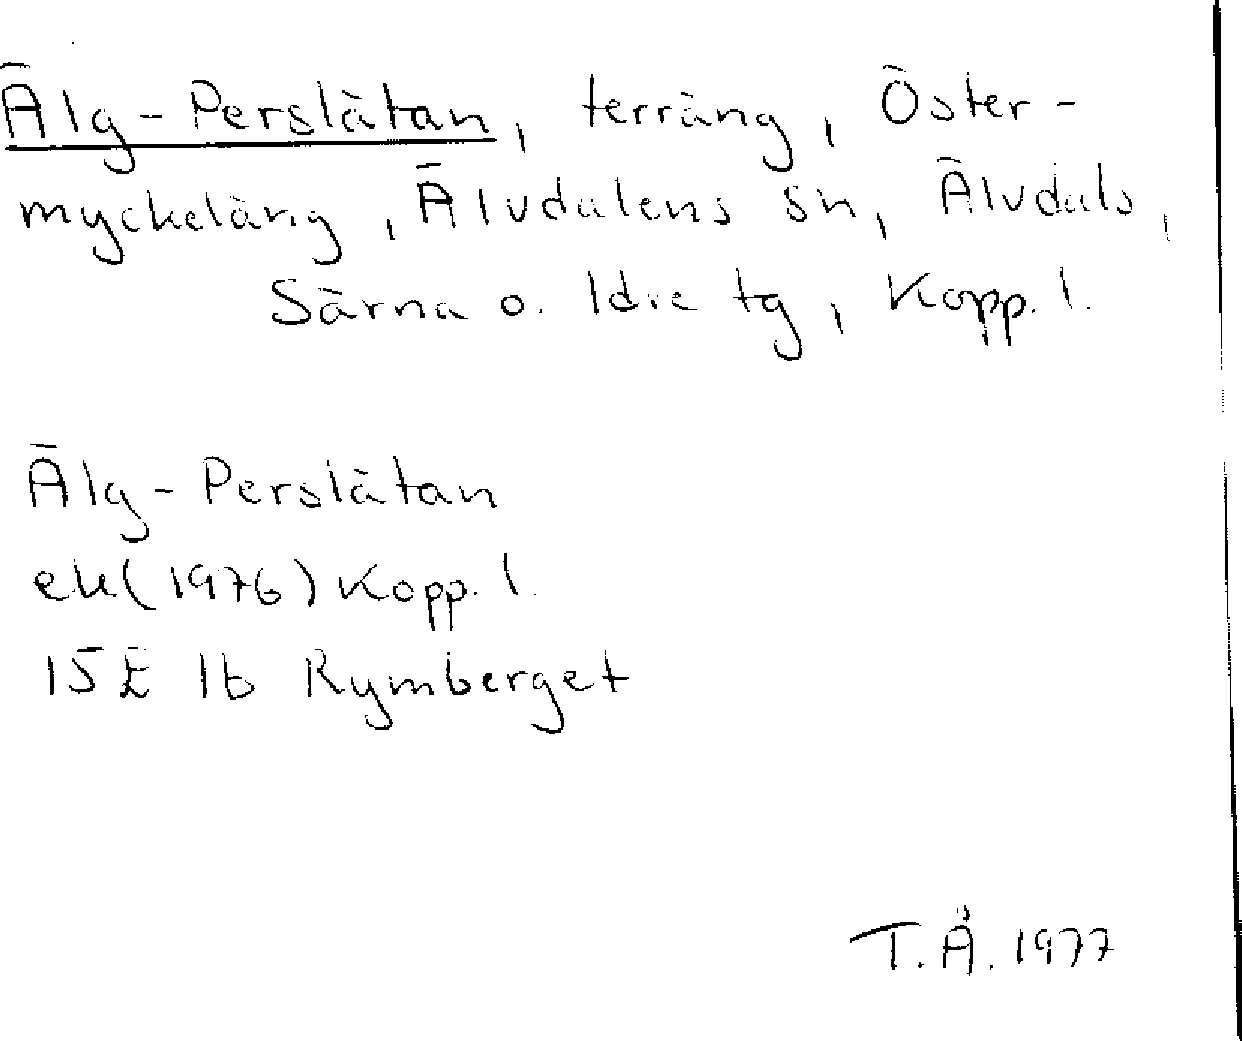 Älg-Perslätan, terräng, Öster-
myckeläng, Älvdalens sn, Älvdals,
Särna o. Idre tg, Kopp. l.
Älg-Perslätan
ek(1976) Kopp. l.
15E 1b Rymberget
T.Å. 1977